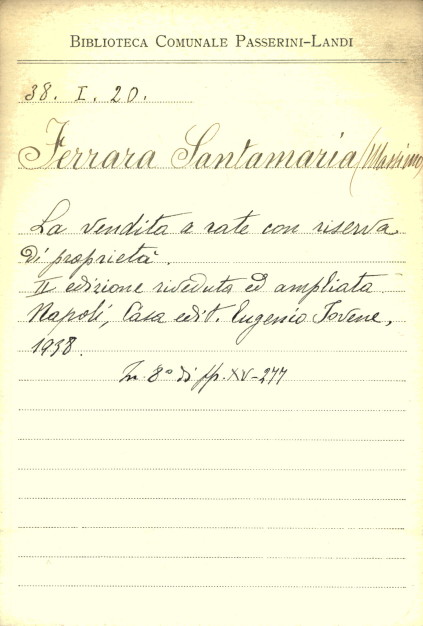 BIBLIOTECA COMUNALE PASSERINI-LANDI
38. I. 20.
Ferrara Santamaria (Massimo
La vendita a rate con riserva
di proprietà.
II edizione riveduta ed ampliata
Napoli, Casa edit. Eugenio Jovene,
1938.
In 8° di pp. XV-277